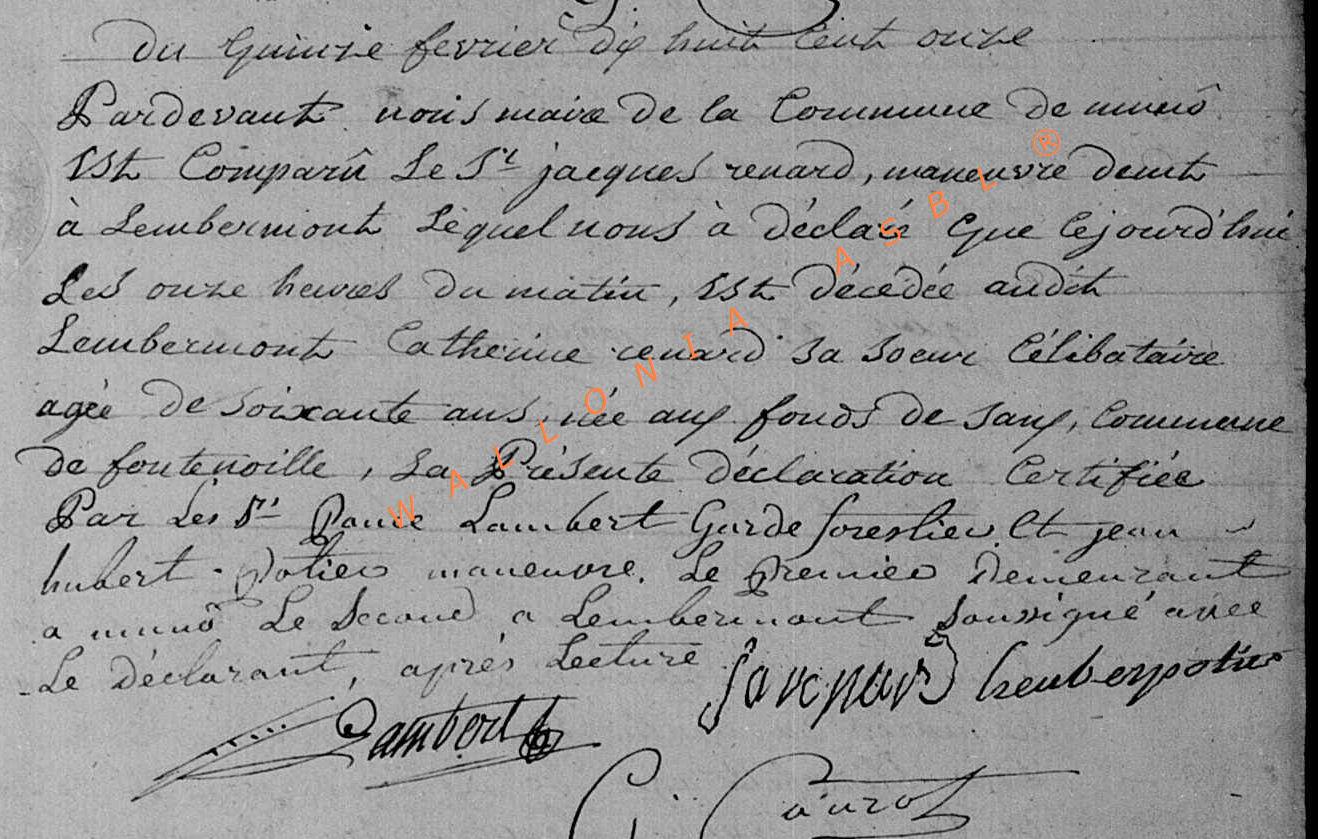 du quinze fevrier dix huit cent onze
Pardevant nous maire de la Commune de munô
Est Comparû Le Sr jacques renard, maneuvre demt
à Lembermont Lequel nous à déclaré que cejourd'hui
Les onze heures du matin, Est décédée audit
Lembermont Catherine renard sa soeur Célibataire
agée de soixante ans, née aux fonds de saux, Commune
de fontenoille, La Présente déclaration Certifiée
Par Les Srs Lambert Garde forestier Et jean
hubert Potier maneuvre. Le Premier Demeurant
a munô Le Second a Lembermont Soussigné avec
Le Déclarant, après Lecture
heuberpotier
Lambert
WALLONIA ASBL ®